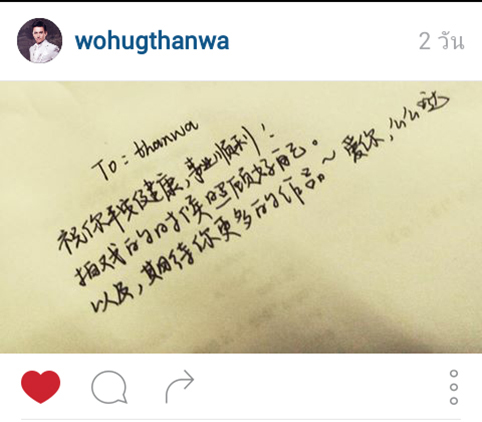 wohugthanwa
2 วัน
To: thanwa
祝你平安健康,事业顺利!
拍戏的时候照顾好自己。
以及,期待你更多的作品~ 爱你,么么哒